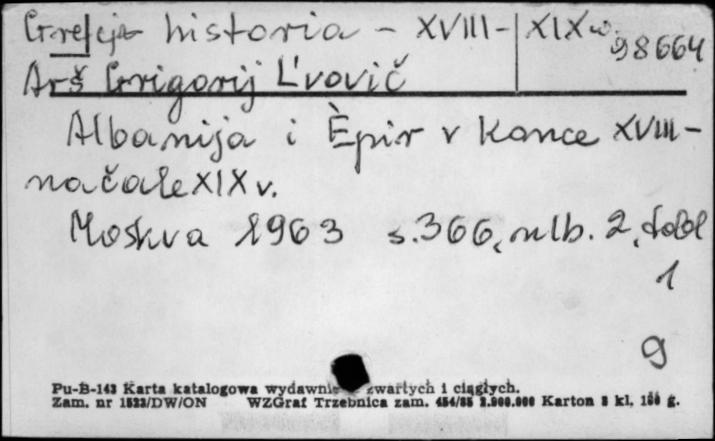 Grecja historia - XVIII - XIX w.
98664
Arš Grigorij L'vovič
Albanija i Èpir v konce XVIII -
načale XIX v.
Moskva 1963 s. 366, nlb. 2, tabl
1
9
Pu-B-143 Karta katalogowa wydawnictw zwartych i ciągłych.
Zam. nr 1533/DW/ON WZGraf Trzebnica zam. 454/85 2.000.000 Karton 3 kl. 180 g.